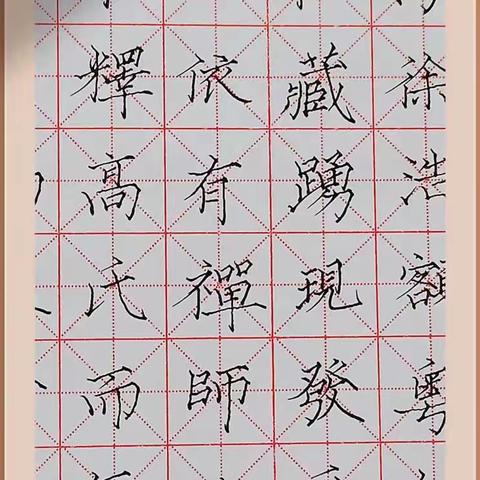 徐浩額粵
藏踴現發
依有禪師
釋高氏而